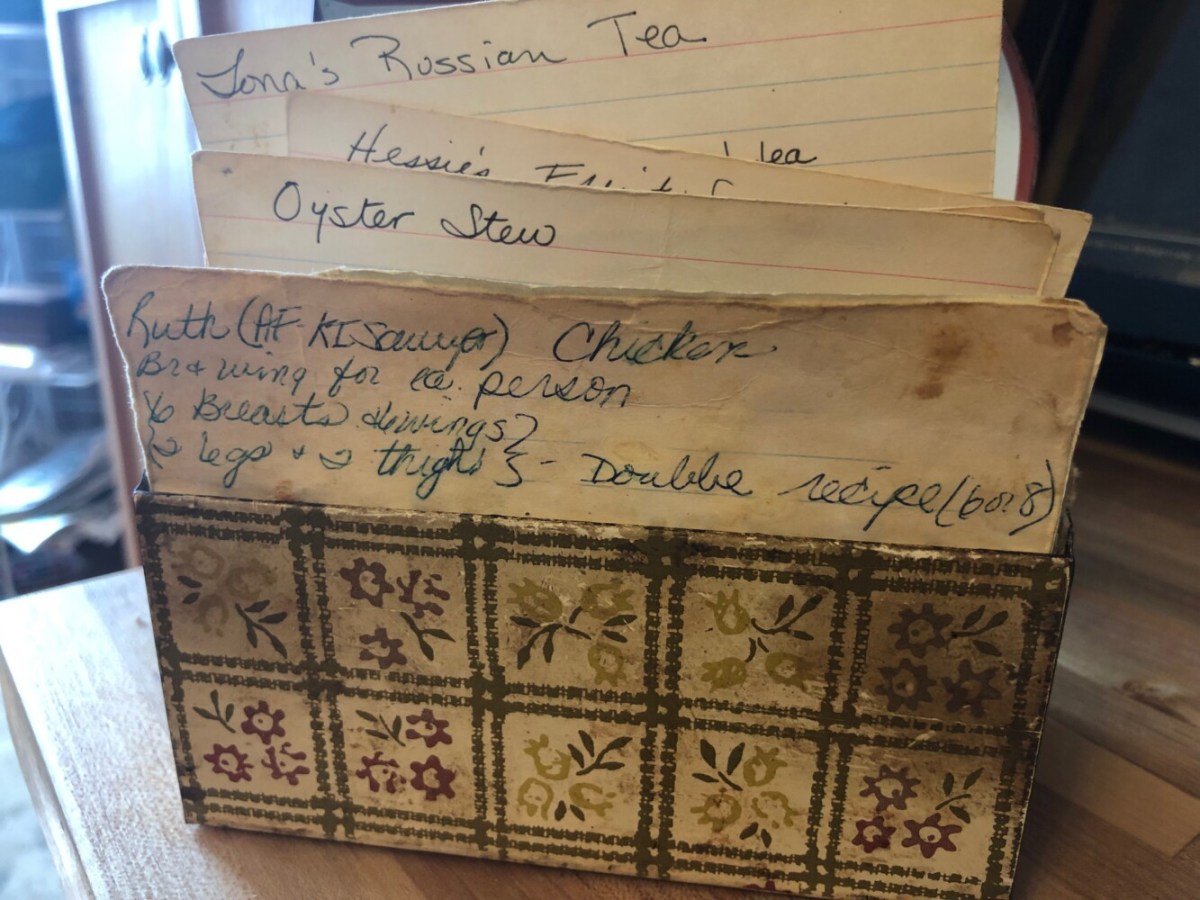 Lona's Russian Tea
Hessie's Fruit Tea
Oyster Stew
Ruth (AF-KISawyer) Chicken
Br + wing for ea. person
6 Breasts & wings }
2 legs + 2 thighs } - Doubbe recipe (6 or 8)